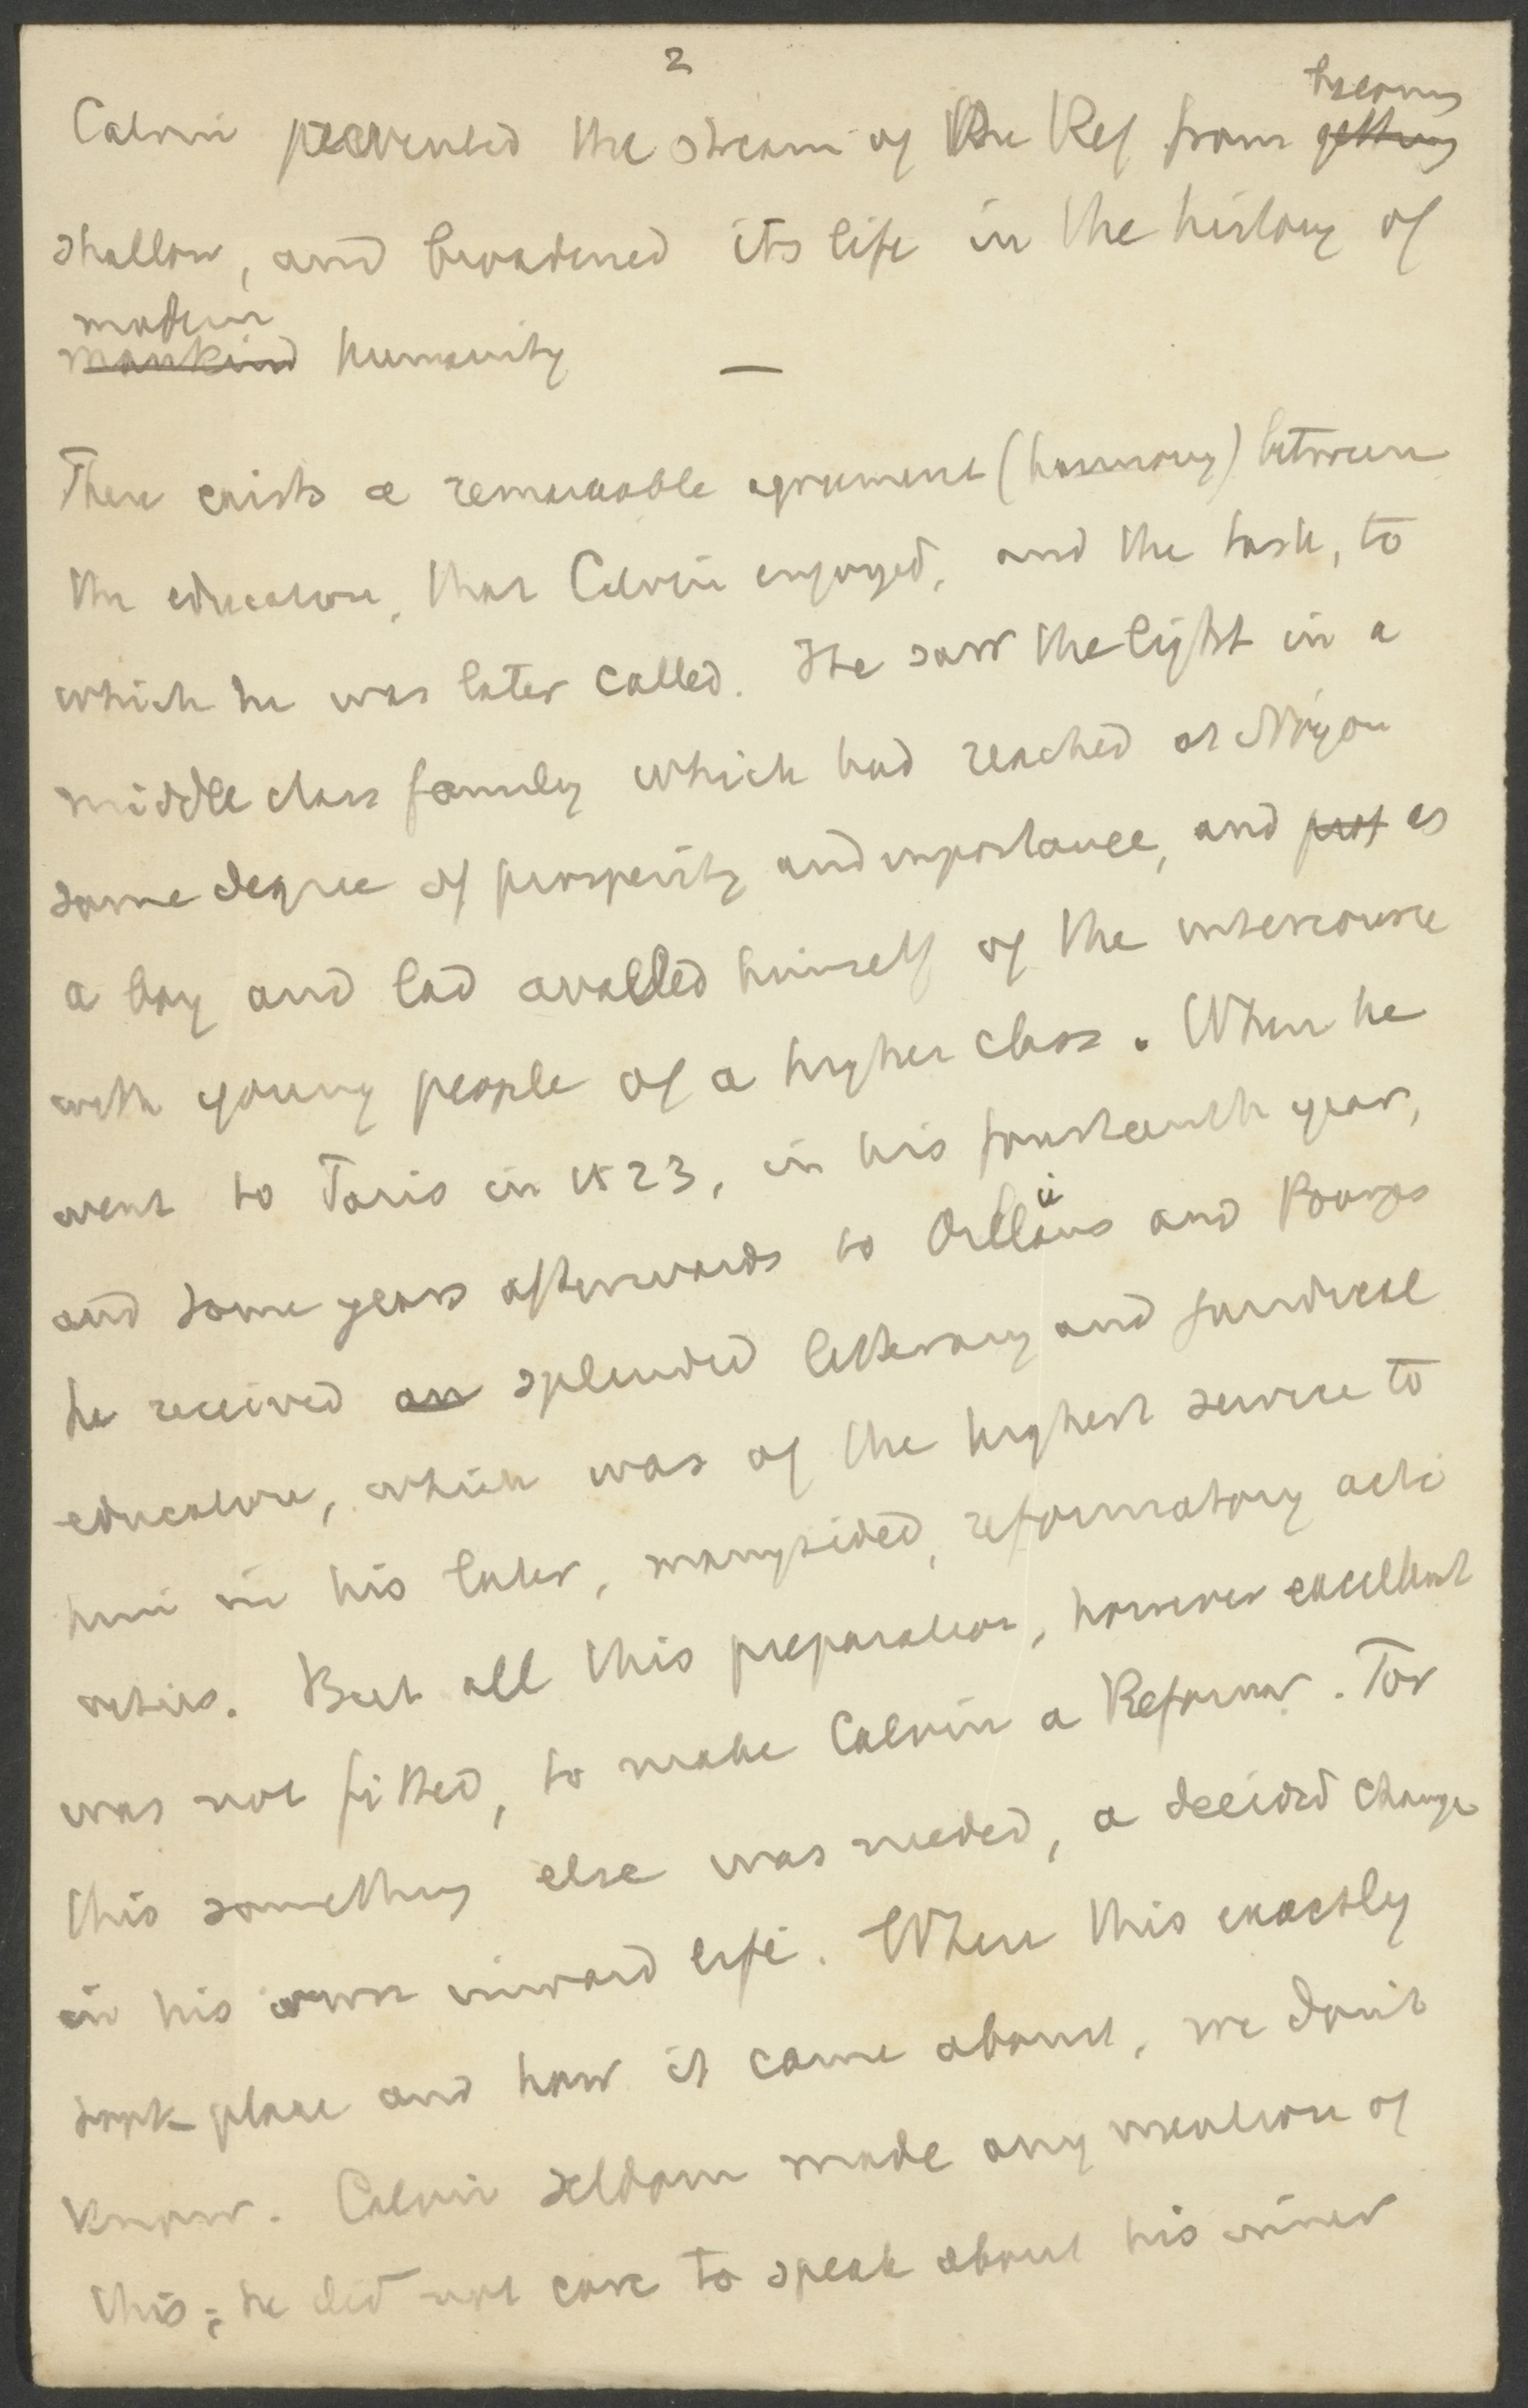 2
becoming
Calvin prevented the stream of the Ref from getting
shallow, and broadened its life in the history of
modern
mankind humanity —
There exists a remarkable agreement (harmony) between
the education, that Calvin enjoyed, and the task, to
which he was later called. He saw the light in a
middle class family which had reached at Noyon
some degree of prosperity and importance, and as
a boy and lad availed himself of the intercourse
with young people of a higher class. When he
went to Paris in 1523, in his fourteenth year,
and some years afterwards to Orleans and Bourges
he received an splendid litterary and juridical
education, which was of the highest service to
him in his later, manysided, reformatory acti
vities. But all this preparation, however excellent
was not fitted, to make Calvin a Reformer. For
this something else was needed, a decided change
in his own inward life. When this exactly
took place and how it came about, we don't
know. Calvin seldom made any mention of
this; he did not care to speak about his inner